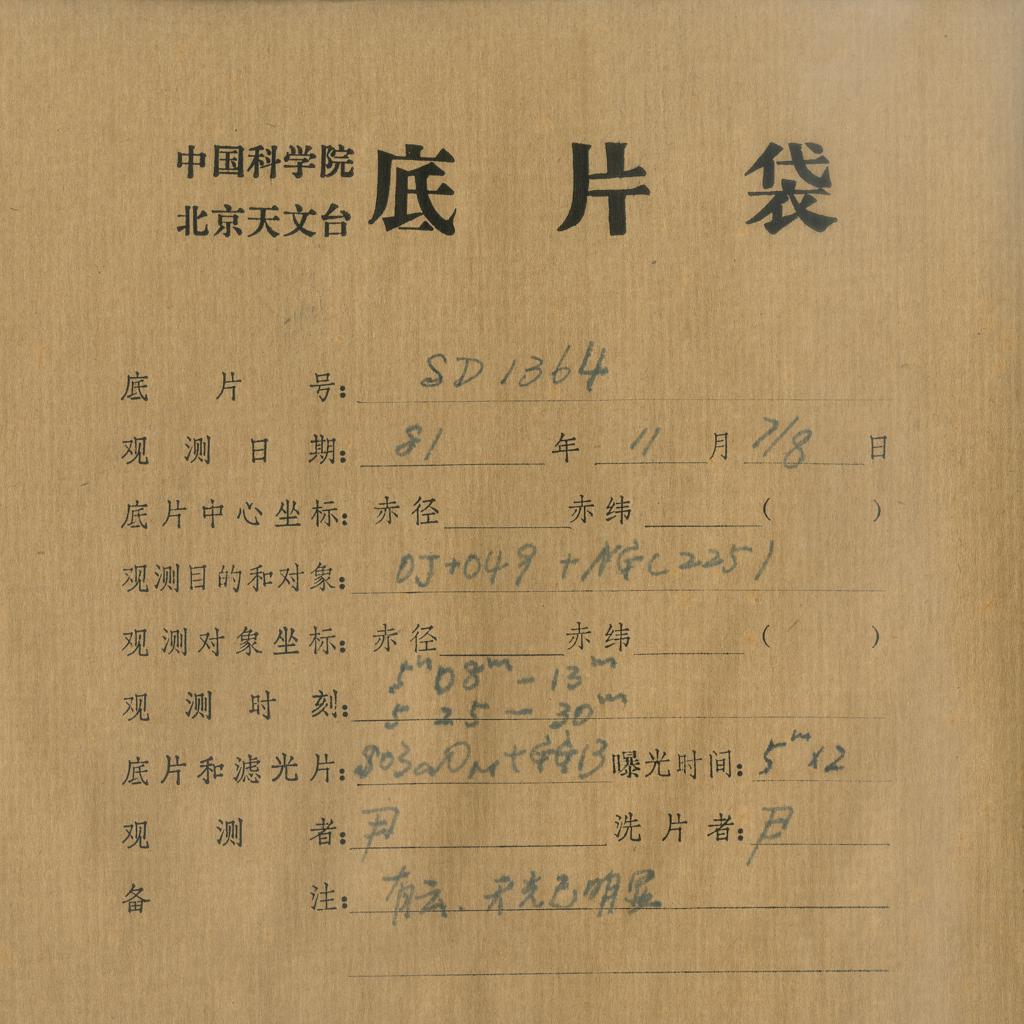 中国科学院
北京天文台
底片袋
底片号: SD1364
观测日期: 81 年 11 月 7/8 日
底片中心坐标: 赤径 赤纬 ( )
观测目的和对象: OJ+049 + NGC2251
观测对象坐标: 赤径 赤纬 ( )
5h 08m - 13m
观测时刻: 5 25 - 30m
底片和滤光片: 103aO + GG13 曝光时间: 5m×2
观测者: 尹 洗片者: 尹
备注: 有云. 天光已明显